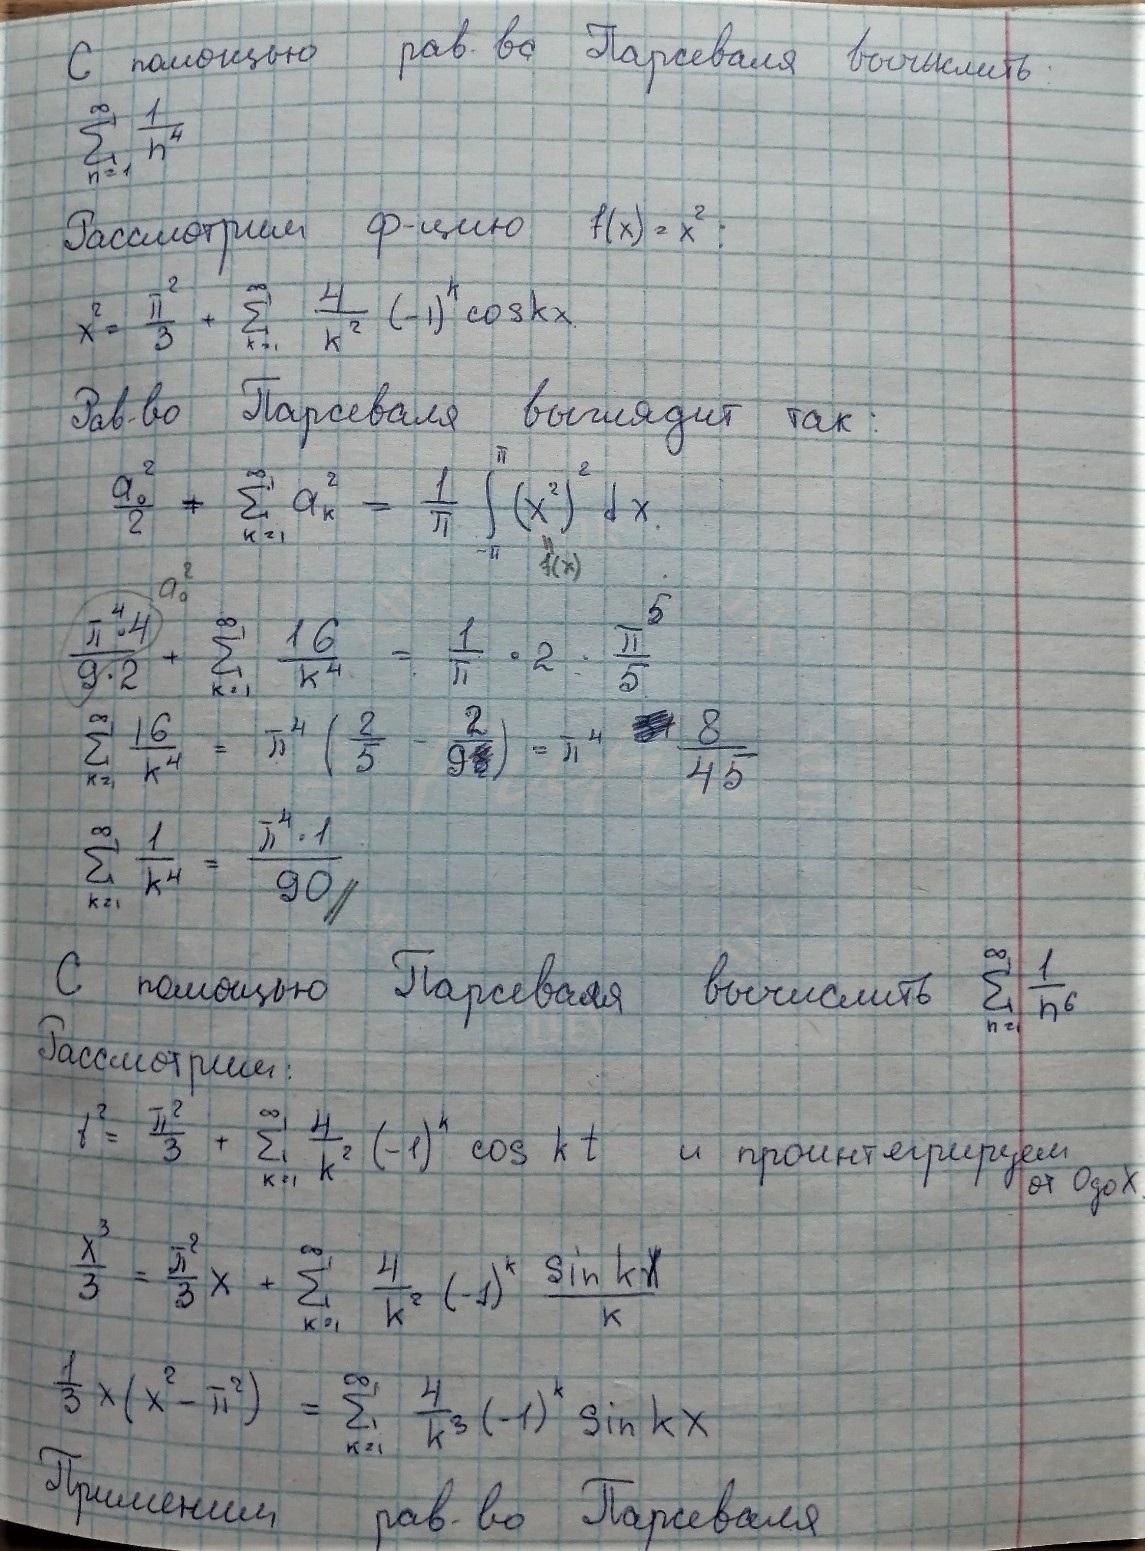 С помощью рав-ва Парсеваля вычислить:
∑_{n=1}^{∞} 1/n^4
Рассмотрим ф-цию f(x) = x^2:
x^2 = π^2/3 + ∑_{k=1}^{∞} 4/k^2 (-1)^k cos kx.
Рав-во Парсеваля выглядит так:
a_0^2/2 + ∑_{k=1}^{∞} a_k^2 = 1/π ∫_{-π}^{π} (x^2)^2 dx.
f(x)
a_0^2
π^4·4/9·2 + ∑_{k=1}^{∞} 16/k^4 = 1/π · 2 · π^5/5
∑_{k=1}^{∞} 16/k^4 = π^4 (2/5 - 2/9) = π^4 8/45
∑_{k=1}^{∞} 1/k^4 = π^4·1/90 //
С помощью Парсеваля вычислить ∑_{n=1}^{∞} 1/n^6
Рассмотрим:
t^2 = π^2/3 + ∑_{k=1}^{∞} 4/k^2 (-1)^k cos kt и проинтегрируем
от 0 до x.
x^3/3 = π^2/3 x + ∑_{k=1}^{∞} 4/k^2 (-1)^k sin kx/k
1/3 x(x^2 - π^2) = ∑_{k=1}^{∞} 4/k^3 (-1)^k sin kx
Применим рав-во Парсеваля